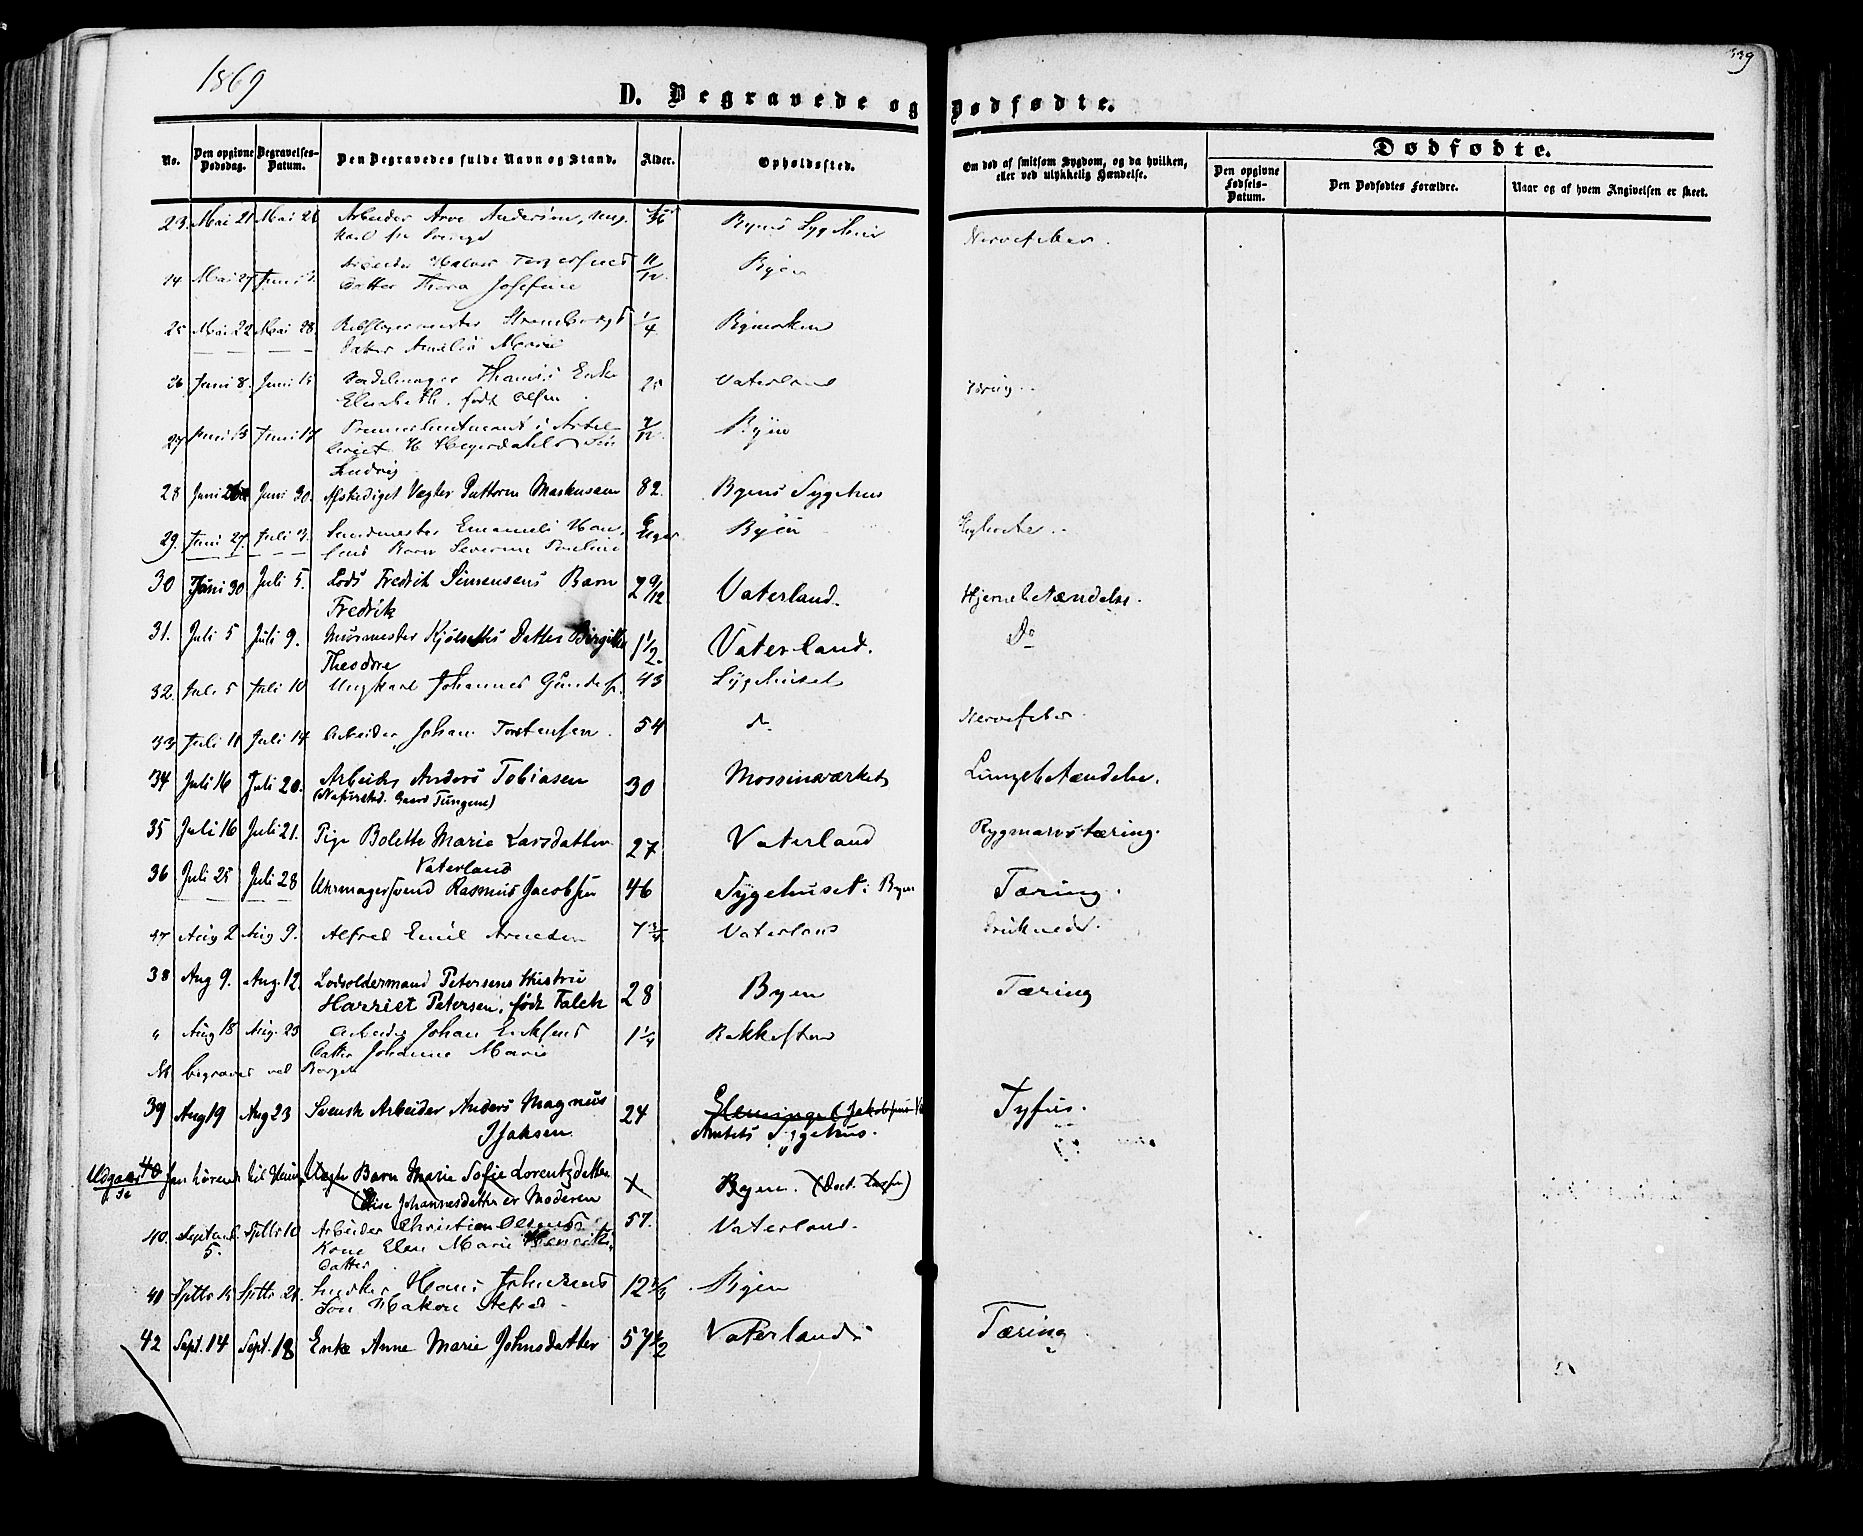 1869
339
D. Begravede og Dødfødte.
No. Den opgivne Dødsdag. Begravelses-Datum. Den Begravedes fulde Navn og Stand. Alder. Opholdssted. Om død af smitsom Sygdom, og da hvilken, eller ved ulykkelig Hændelse. Dødfødte.
Den opgivne Fødsels-Datum. Den Dødfødtes Forældre. Naar og af hvem Angivelsen er skeet.
23. Mai 21 Mai 26 Arbeider Arve Andersen, ung- Byens Sygehus Nervefeber.
karl fra
24 Mai 27 Juni 3. Arbeider Halvor Terjesens 11/12 Byen
Datter Thora Josefine
25 Mai 22 Mai 28 Rebslagermester Strømbergs 1/4 Bymarken
Datter Amalie Marie
26 Juni 8. Juni 15 Sadelmager Thamis Enke 25 Vaterland Tæring.
Elisabeth, født Olsen.
27 Juni 13 Juni 17 Premierlieutenant i Artil- 7/12 Byen
leriet H. Heyerdahls Søn
Ludvig
28 Juni 26 Juni 30. Afskediget Vægter Guttorm Markussen 82. Byens Sygehus
29. Juni 27. Juli 3. Sandmester Emanuels Han- 6 Uger Byen
sens Barn Severine Pauline
30 Juni 30 Juli 5. Lods Fredrik Simensens Barn 2 9/12 Vaterland. Hjernebetændelse.
Fredrik
31. Juli 5 Juli 9. Murmester Kjølseths Datter Birgitte 1 1/2. Vaterland. Do
Theodore
32. Juli 5 Juli 10 Ungkarl Johannes Gundes. 43 Sygehuset
33 Juli 11 Juli 14 Arbeider Johan Torstensen. 54 do Nervefeber.
34 Juli 16 Juli 20. Arbeider Anders Tobiasen 30 Mossinværket Lungebetændelse.
(Naturstd. Gaard Tungene)
35 Juli 16 Juli 21. Pige Bolette Marie Larsdatter 27 Vaterland Rygmarvstæring.
Vaterland
36 Juli 25 Juli 28 Uhrmagersvend Rasmus Jacobsen 46 Sygehuset i Byen Tæring.
37 Aug 2 Aug 9. Alfred Emil Arnesen 7 3/4 Vaterland Druknede.
38 Aug 9. Aug. 12. Lodsoldermand Petersens Hustru 28 Byen Tæring
Harriet Petersen, født Falck
" Aug 18 Aug. 23 Arbeider Johan Eriksens 1 1/4 Bakkesten
Datter Johanne Marie
NB begravet ved Borge
39 Aug 19 Aug 23 Svensk Arbeider Anders Magnus 24 Glemminge (Jakobsens Tyfus.
Isaksen. Amtets Sygehus.
Udgaar 40 Jan Barn Marie Sofie Lorentzdatter Byen.
(Elise Johannesdatter er Moderen
40. Septemb. 5. Septbr 10 Arbeider Christian Olsens 57. Vaterland.
Kone Elen Marie Henriks-
datter
41 Septbr 15 Septbr 21. Snedker Hans Johnsens 12 1/3 Byen
Søn Hakon Alfred.
42 Sept. 14 Sept. 18 Enke Anne Marie Johnsdatter 57 1/2 Vaterland Tæring.